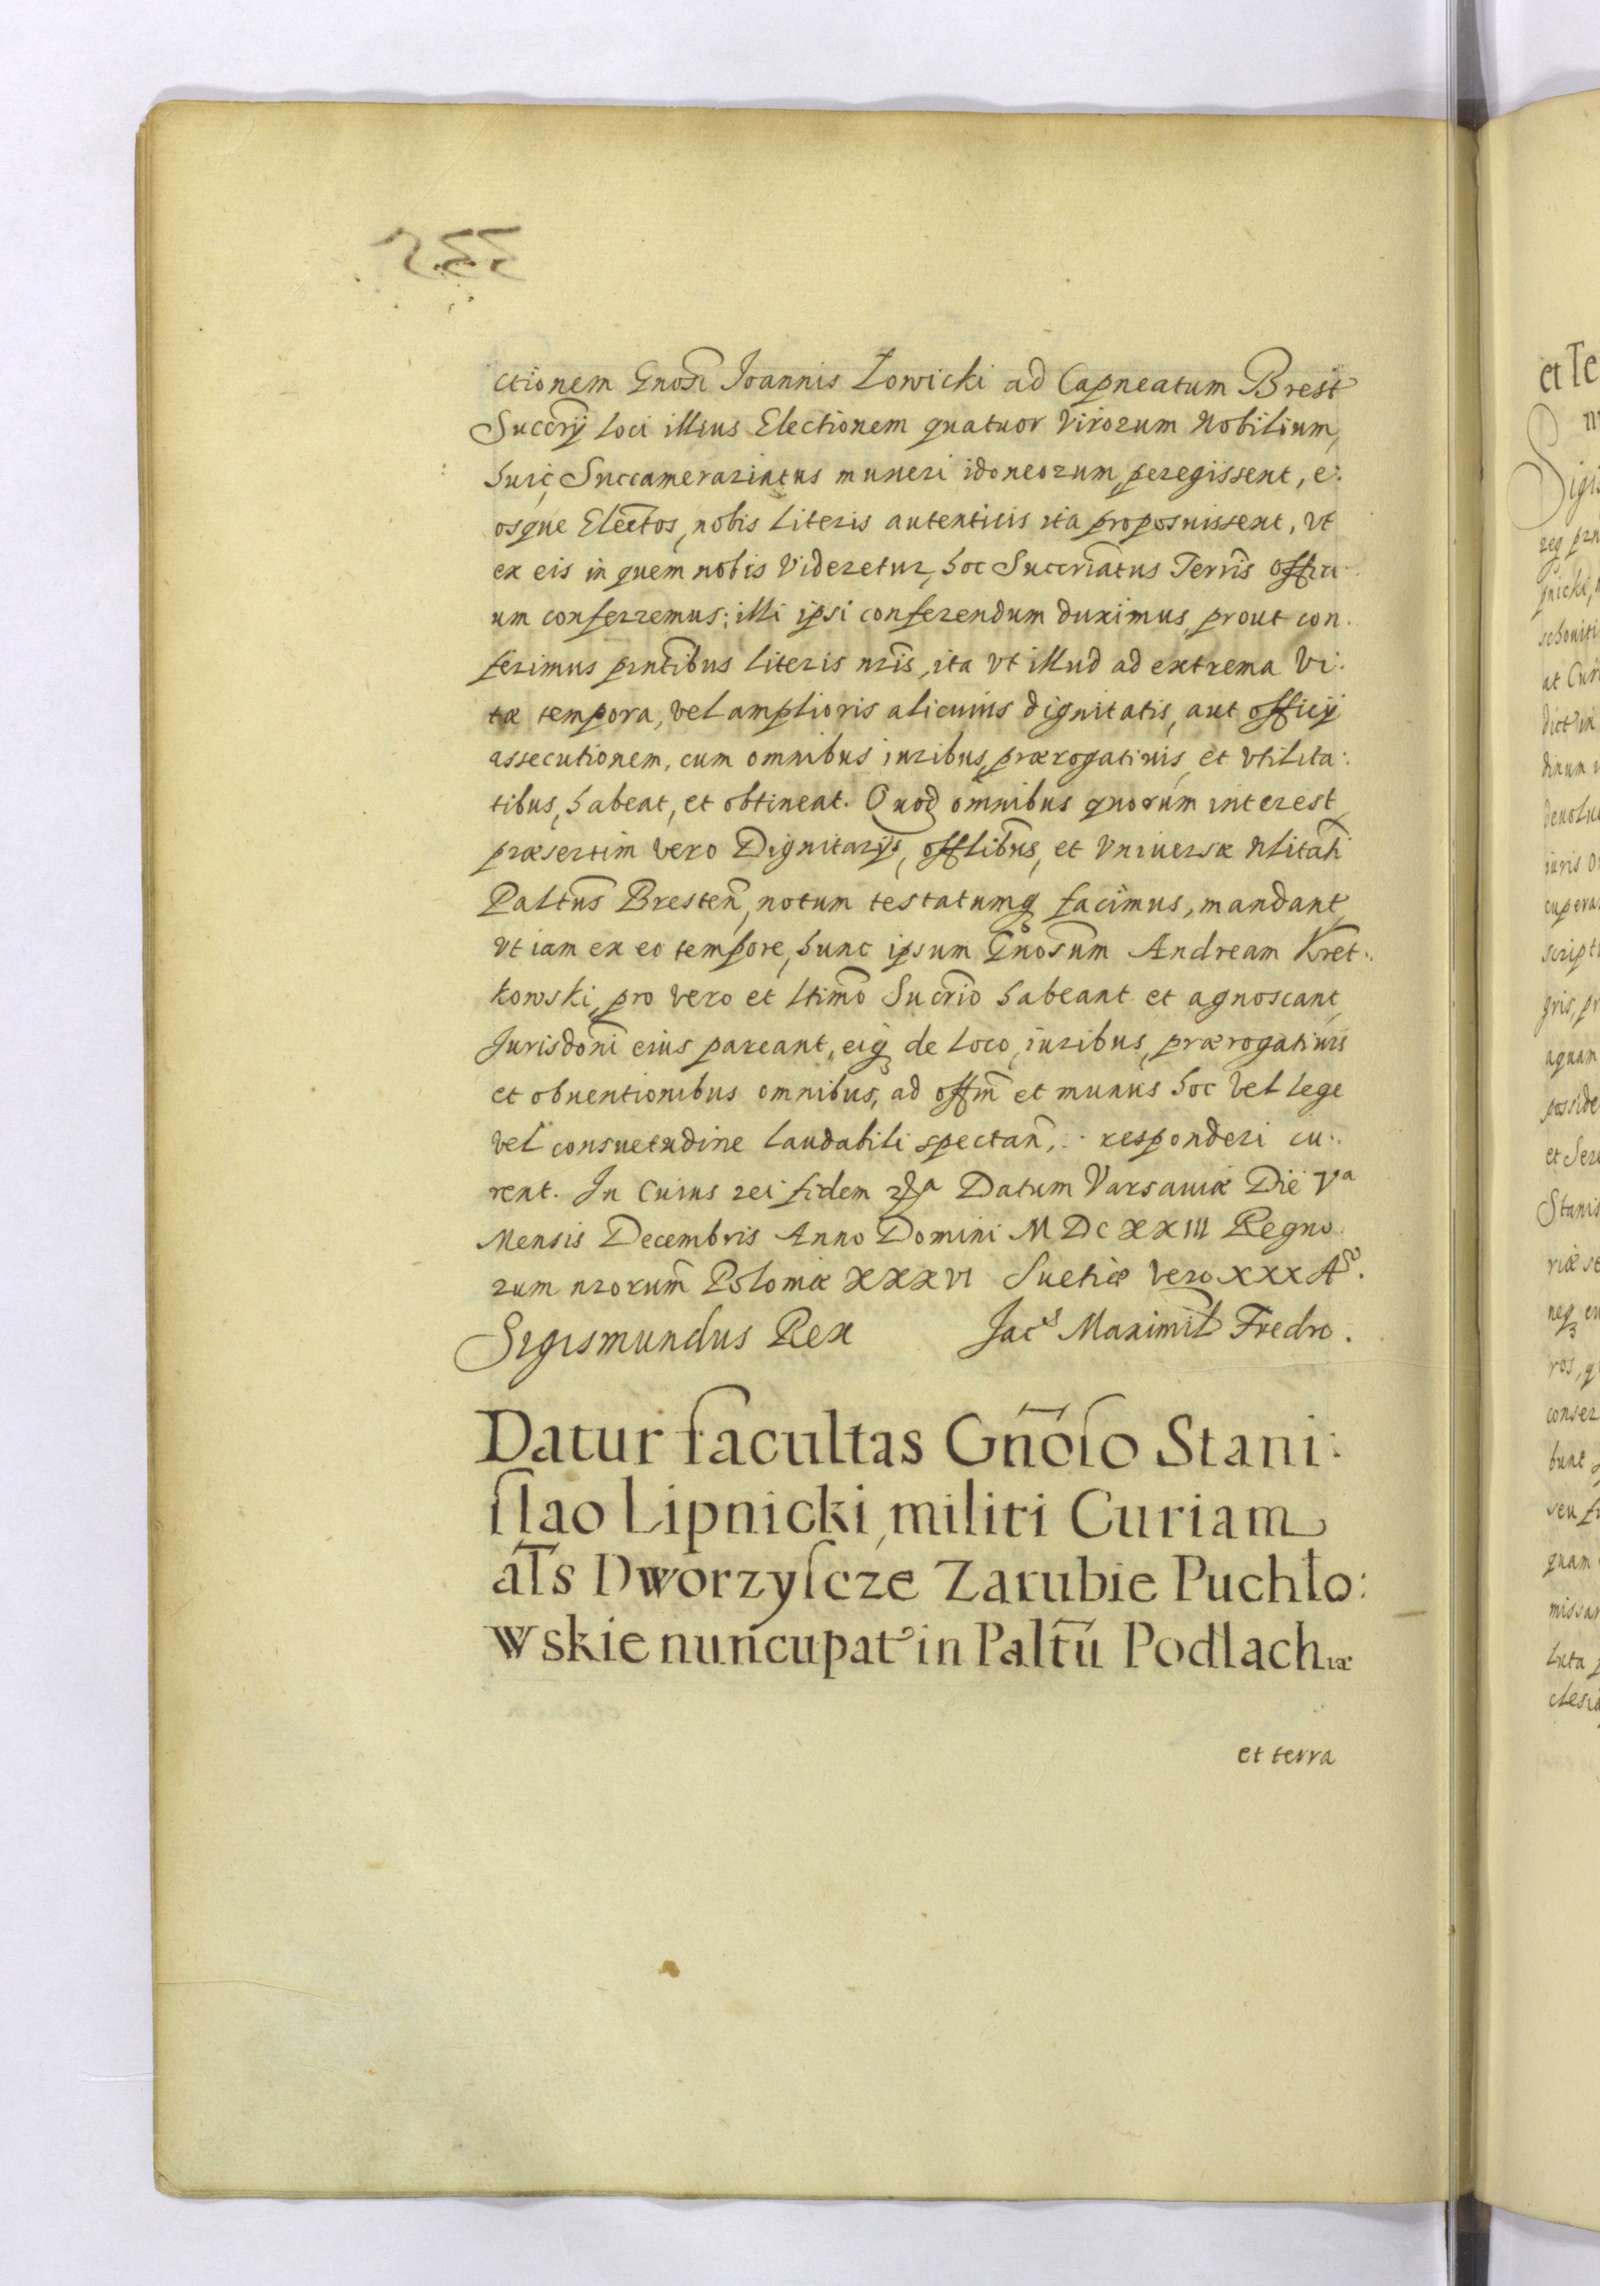 ctionem Gnosi Joannis Łowicki ad Capneatum Brest
Succrij loci illius Electionem quatuor Virorum Nobilium,
huic Succamerariatus muneri idoneorum peregissent, e:
osque Electos, nobis literis autenticis ita proposuissent, vt
ex eis in quem nobis videretur, hoc Succriatus Terris offici
um conferremus; illi ipsi conferendum duximus, prout con
ferimus pntibus literis nris, ita vt illud ad extrema vi:
tæ tempora, vel amplioris alicuius dignitatis, aut officij
assecutionem, cum omnibus iuribus, prærogatiuis, et vtilita:
tibus, habeat, et obtineat. Quod omnibus quorum interest
præsertim vero Dignitarijs, offlibus, et Vniuersæ Nlitati
Paltus Bresten, notum testatumq facimus, mandant,
vt iam ex eo tempore, hunc ipsum Gnosum Andream Kret:
kowski, pro vero et ltimo Sucrio habeant et agnoscant,
Jurisdoni eius pareant, eiq de loco, iuribus, prærogatiuis
et obuentionibus omnibus, ad offm et munus hoc vel lege
vel consuetudine laudabili spectan, responderi cu:
rent. In Cuius rei fidem Datum Varsauiæ Die Va
Mensis Decembris Anno Domini MDCXXIII Regno
rum nrorum Poloniæ XXXVI Suetiæ vero XXX Ao.
Sigismundus Rex Jacs Maximil Fredro.
Datur facultas Gnoso Stani:
slao Lipnicki, militi Curiam
als Dworzyscze Zarubie Puchło:
wskie nuncupat in Paltu Podlachiæ
et terra